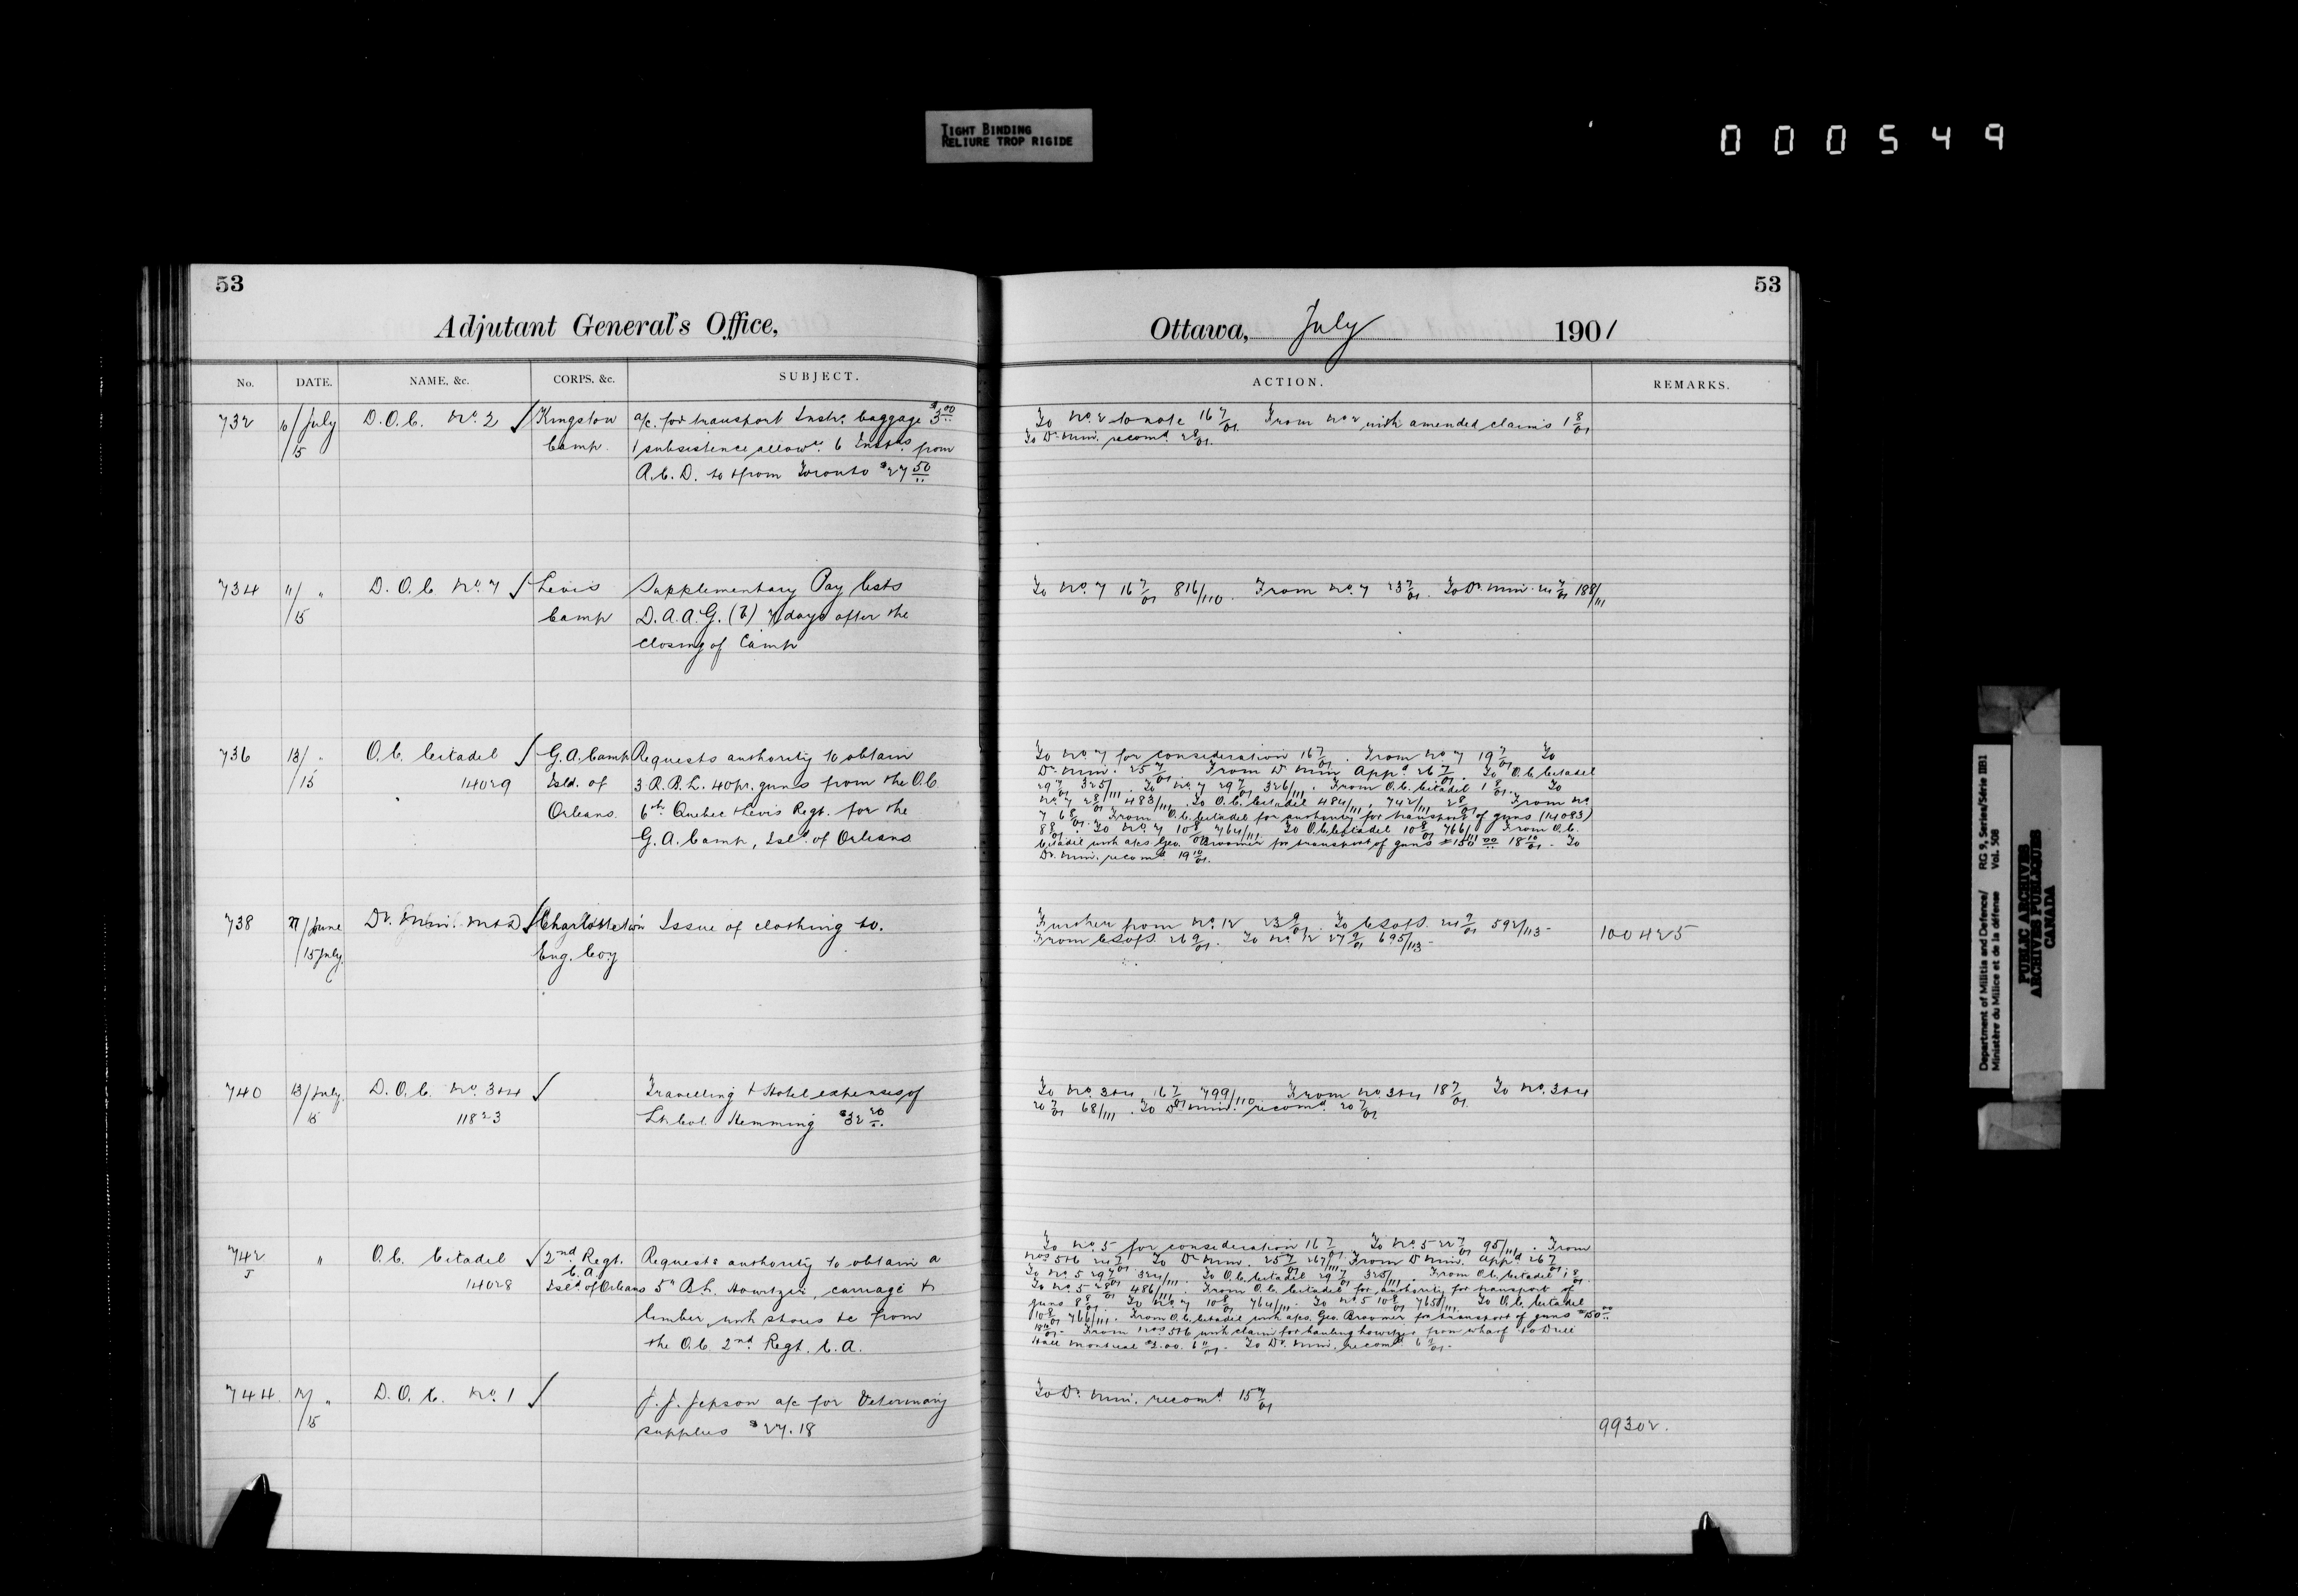 TIGHT BINDING
RELIURE TROP RIGIDE
000549
53
Adjutant General's Office,
No. DATE. NAME, &c. CORPS, &c. SUBJECT.
732 10/July D.O.C. No. 2 ✓ Kingston a/c. for transport Instrs. baggage $3.00
/15 Camp. 1 subsistence allowce. 6 Instrs. from
A.C.D. to & from Toronto $27.50
734 11/ " D.O.C. No. 7 ✓ Levis Supplementary Pay lists
/15 Camp D.A.A.G. (2) 7 days after the
closing of Camp
736 13/ " O.C. Citadel ✓ G.A. Camp Requests authority to obtain
/15 14029 Isld. of 3 R.B.L. 40 pr. guns from the O.C.
Orleans. 6th Quebec & Levis Regt. for the
G.A. Camp, Isld. of Orleans
738 27/June Dr. Min. M&D ✓ Charlottetown Issue of clothing to.
/15 July. Eng. Coy
740 13/July D.O.C. No. 3&4 ✓ Travelling & Hotel expenses of
/15 11823 Lt. Col. Hemming $32.20
742 " O.C. Citadel ✓ 2nd Regt. Requests authority to obtain a
C.A.
14028 Isld. of Orleans 5" B.L. Howitzer, carriage &
limber, with stores &c from
the O.C. 2nd Regt. C.A.
744. 12/ " D.O.C. No. 1 ✓ J. J. Jepson a/c for Veterinary
/15 supplies $27.18
53
Ottawa, July 1901
ACTION. REMARKS.
To No. 2 to note 16 7/01. From No. 2 with amended claims 1 8/01
To Dr. Min. recomd. 2 8/01.
To No. 7 16 7/01 816/110. From No. 7 23 7/01. To Dr. Min. 24 7/01 188/111
To No. 7 for consideration 16 7/01. From No. 7 19 7/01 To
Dr. Min. 25 7/01. From D Min Appd. 26 7/01. To O.C. Citadel
29 7/01 325/111. To No. 7 29 7/01 326/111. From O.C. Citadel 1 8/01. To
No. 7 2 8/01 483/111. To O.C. Citadel 484/111, 742/111 2 8/01 From No.
7 6 8/01. From O.C. Citadel for authority for transport of guns (14083)
8 8/01. To No. 7 10 8/01 764/111. To O.C. Citadel 10 8/01 766/111 From O.C.
Citadel with a/cs Geo. Broomer for transport of guns $150.00 18 10/01. To
Dr. Min. recomd. 19 10/01.
Further from No. 12 23 9/01. To C.S. of S. 24 9/01 592/113-
From C.S. of S. 26 9/01. To No. 12 27 9/01 695/113- 100425
To No. 3&4 16 7/01 799/110 From No. 3&4 18 7/01. To No. 3&4
20 7/01 68/111. To Dr. Min. recomd. 20 7/01
To No. 5 for consideration 16 7/01 To No. 5 22 7/01 95/111. From
Nos. 5&6 24 7/01 To Dr Min. 25 7/01 267/111 From D Min. Appd 26 7/01
To No. 5 29 7/01 324/111. To O.C. Citadel 29 7/01 325/111. From O.C. Citadel 1 8/01.
To No. 5 2 8/01 486/111. From O.C. Citadel for authority for transport of
guns 8 8/01. To No. 7 10 8/01 764/111. To No 5 10 8/01 765/111. To O.C. Citadel
10 8/01 766/111. From O.C. Citadel with a/cs. Geo. Broomer for transport of guns $150.00
18 10/01. From Nos. 5&6 with claim for hauling howitzer from wharf to Drill
Hall Montreal $2.00. 6 11/01. To Dr. Min. recomd
To Dr. Min. recomd. 15 7/01
99302.
Department of Militia and Defence/ RG 9, Series/Série IIB1
Ministère du Milice et de la défense Vol. 508
PUBLIC ARCHIVES
ARCHIVES PUBLIQUES
CANADA